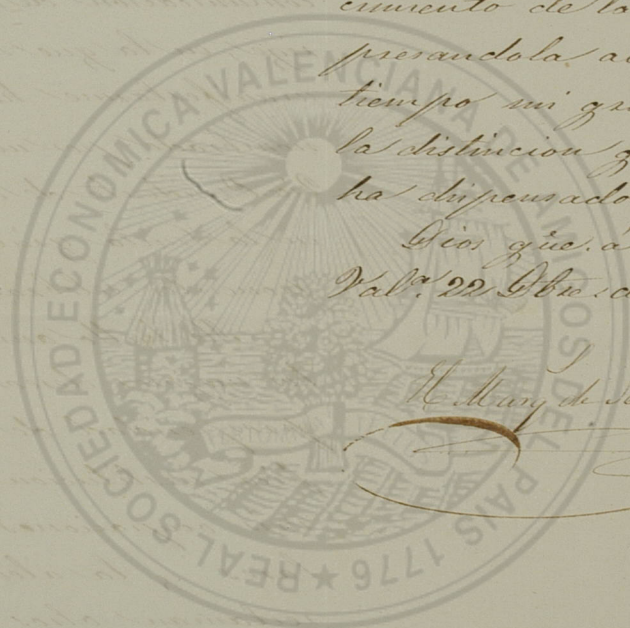 cimiento de la
presandola a
tiempo mi gra
la distincion q
ha dispensado
Dios gûe. á
Valª. 22 Dbre. d
El Marq de
REAL SOCIEDAD ECONOMICA VALENCIANA DE AMIGOS DEL PAIS 1776 ★